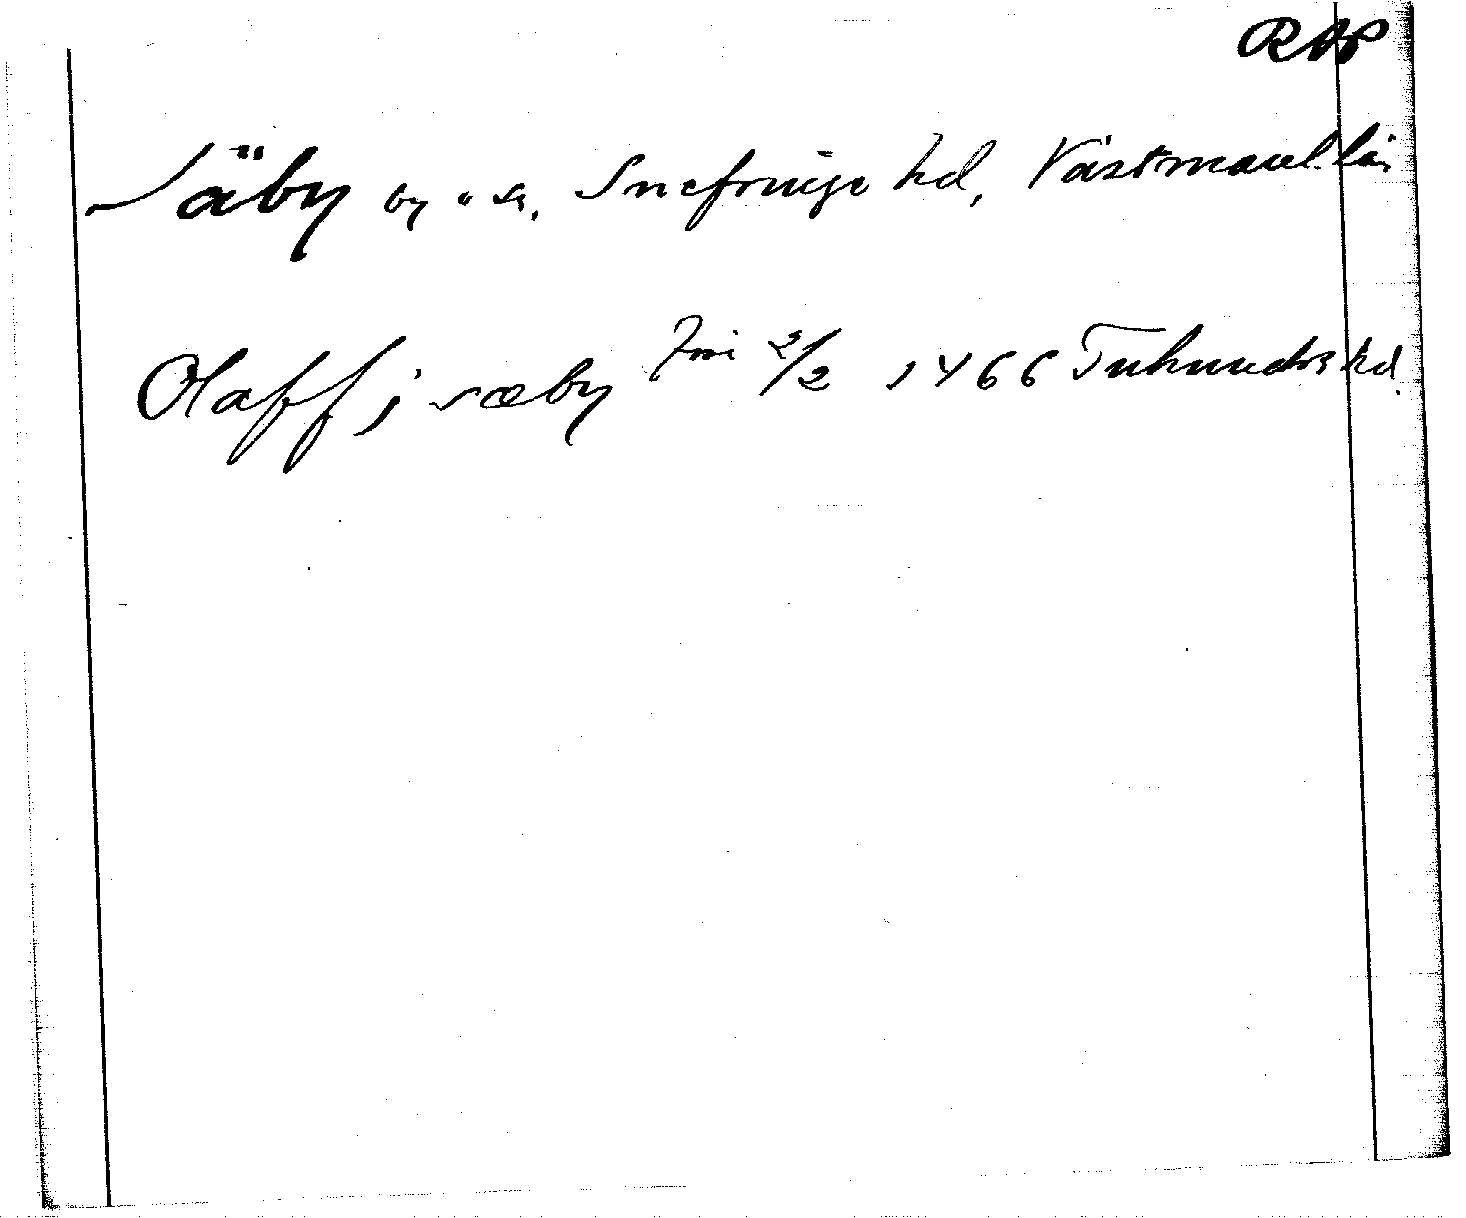 RAP
Säby by o. sn, Snefringe hd, Västmanl. län
Olaff j sæby 2/2 1466 Tuhundra hd